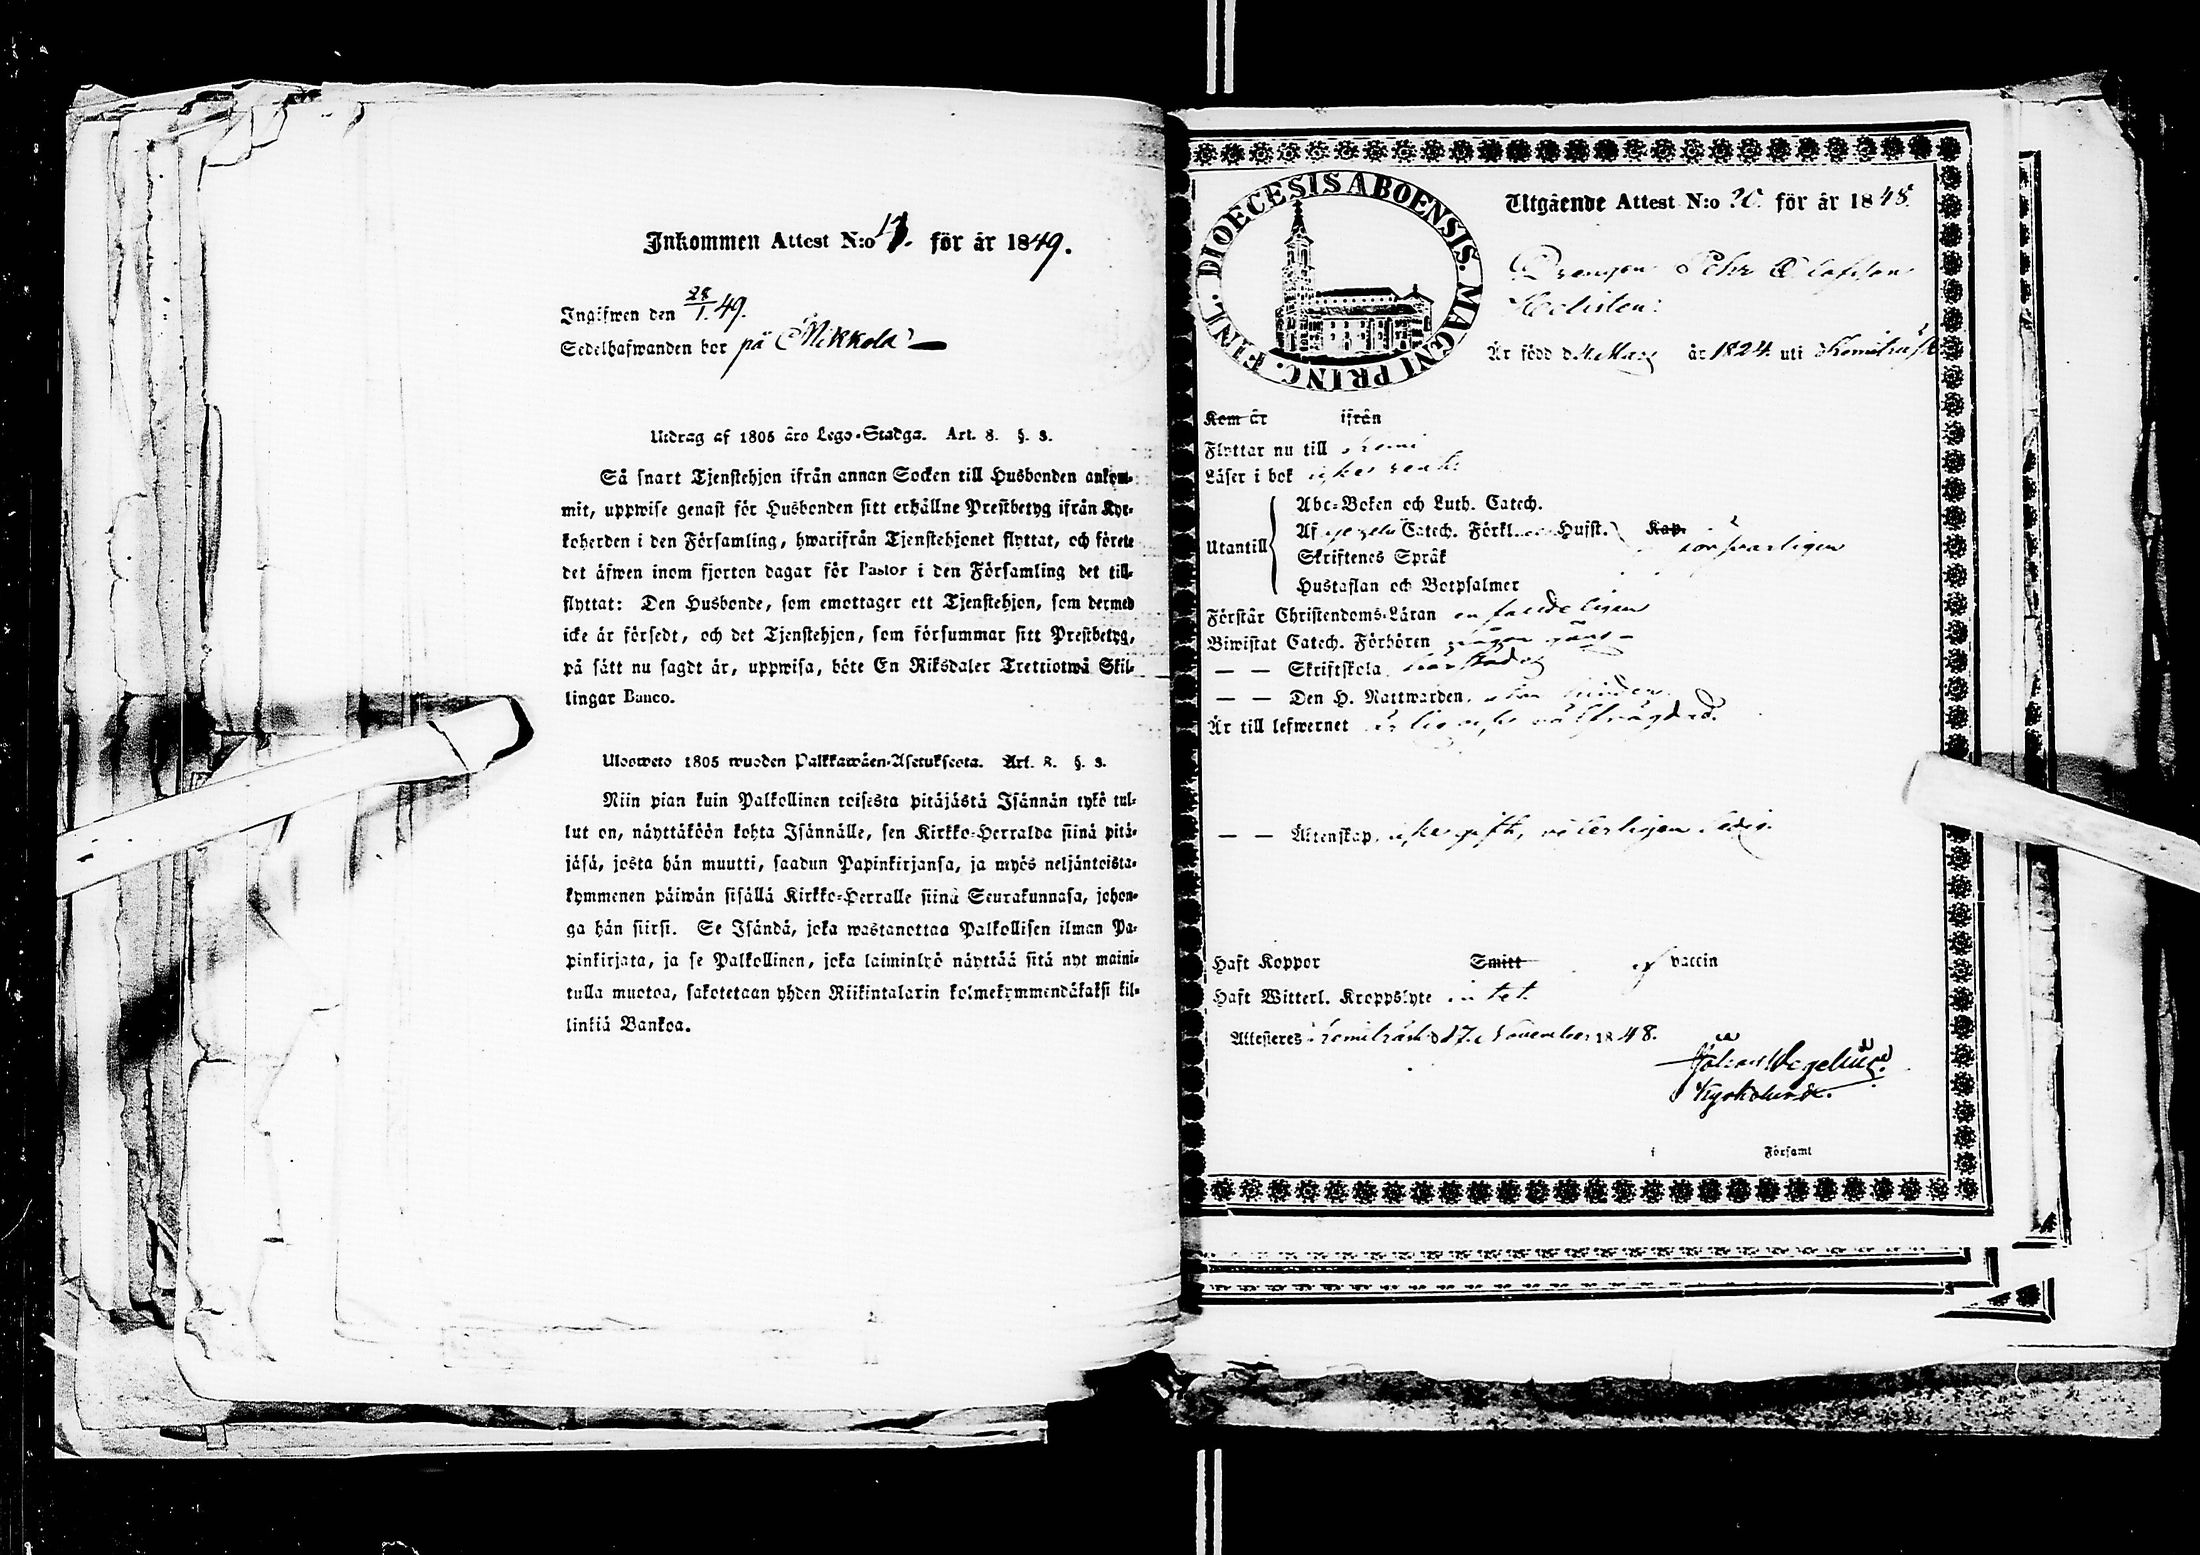 Inkommen Attest N:o 13. för år 1849.
Ingifwen den 28/1. 49.
Sedelhafwanden bor på Mikkola
Utdrag af 1805 års Lego-Stadga. Art. 8. §. 3.
Så snart Tjenstehjon ifrån annan Socken till Husbonden ankom-
mit, uppwise genast för Husbonden sitt erhållne Prestbetyg ifrån Kyr-
koherden i den Församling, hwarifrån Tjenstehjonet flyttat, och förete
det äfwen inom fjorton dagar för Pastor i den Församling det till-
flyttat: Den Husbonde, som emottager ett Tjenstehjon, som dermed
icke är försedt, och det Tjenstehjon, som försummar sitt Prestbetyg,
på sätt nu sagdt är, uppwisa, böte En Riksdaler Trettiotwå Skil-
lingar Banco.
Ulosweto 1805 wuoden Palkkawäen-Asetuksesta. Art. 8. §. 3.
Niin pian kuin Palkollinen toisesta pitäjästä Isännän tykö tul-
lut on, näyttäköön kohta Isännälle, sen Kirkko-Herralda siinä pitä-
jäsä, josta hän muutti, saadun Papinkirjansa, ja myös neljäntoista-
kymmenen päiwän sisällä Kirkko-Herralle siinä Seurakunnasa, johon-
ga hän siirsi. Se Isändä, joka wastanottaa Palkollisen ilman Pa-
pinkirjata, ja se Palkollinen, joka laiminlyö näyttää sitä nyt maini-
tulla muotoa, sakotetaan yhden Riikintalarin kolmekymmendäkaksi kil-
linkiä Bankoa.
FINL. DIOECESIS ABOENSIS. MAGNI PRINC.
Utgående Attest N:o 20. för år 1848.
Drängen Pehr Olofsson
Är född d. 4 Mars år 1824. uti Kemiträsk
Kom år ifrån
Flyttar nu till Kemi
Läser i bok
Abc-Boken och Luth. Catech.
Utantill Af Catech. Förkl. Husst. Kap. försvarligen
Skriftenes Språk
Hustaflan och Botpsalmer
Förstår Christendoms-Läran enfaldeligen
Biwistat Catech. Förhören någon gång
— — Skriftskola
— — Den H. Nattwarden.
Är till lefwernet
— — Äktenskap. icke gift, ledig.
Haft Koppor Smitt af vaccin
Haft Witterl. Kroppslyte intet.
Attesteras Kemiträsk d. 17. November 1848.
Johan Wegelius.
Kyrkoherde.
i Församl